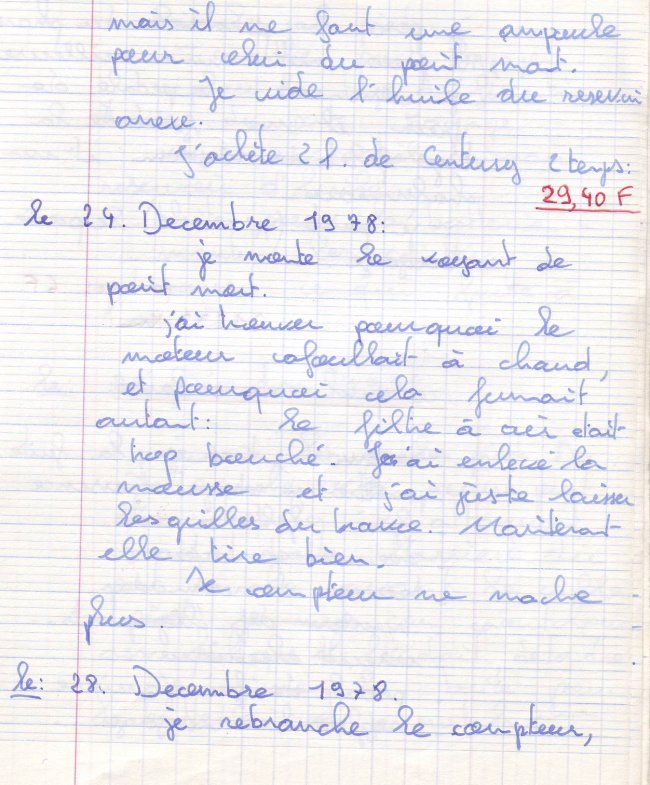 mais il me faut une ampoule
pour celui du point mort.
Je vide l'huile du reservoir
anexe.
J'achète 2 l. de Century 2 temps:
29,40 F
le 24. Decembre 1978:
je monte le voyant de
point mort.
j'ai trouver pourquoi le
moteur cafouillait à chaud,
et pourquoi cela fumait
autant: le filtre à air était
trop bouché. J'ai enlevé la
mousse et j'ai juste laisser
les grilles du trou. Maintenant
elle tire bien.
Le compteur ne marche
plus.
le: 28. Decembre 1978.
je rebranche le compteur,